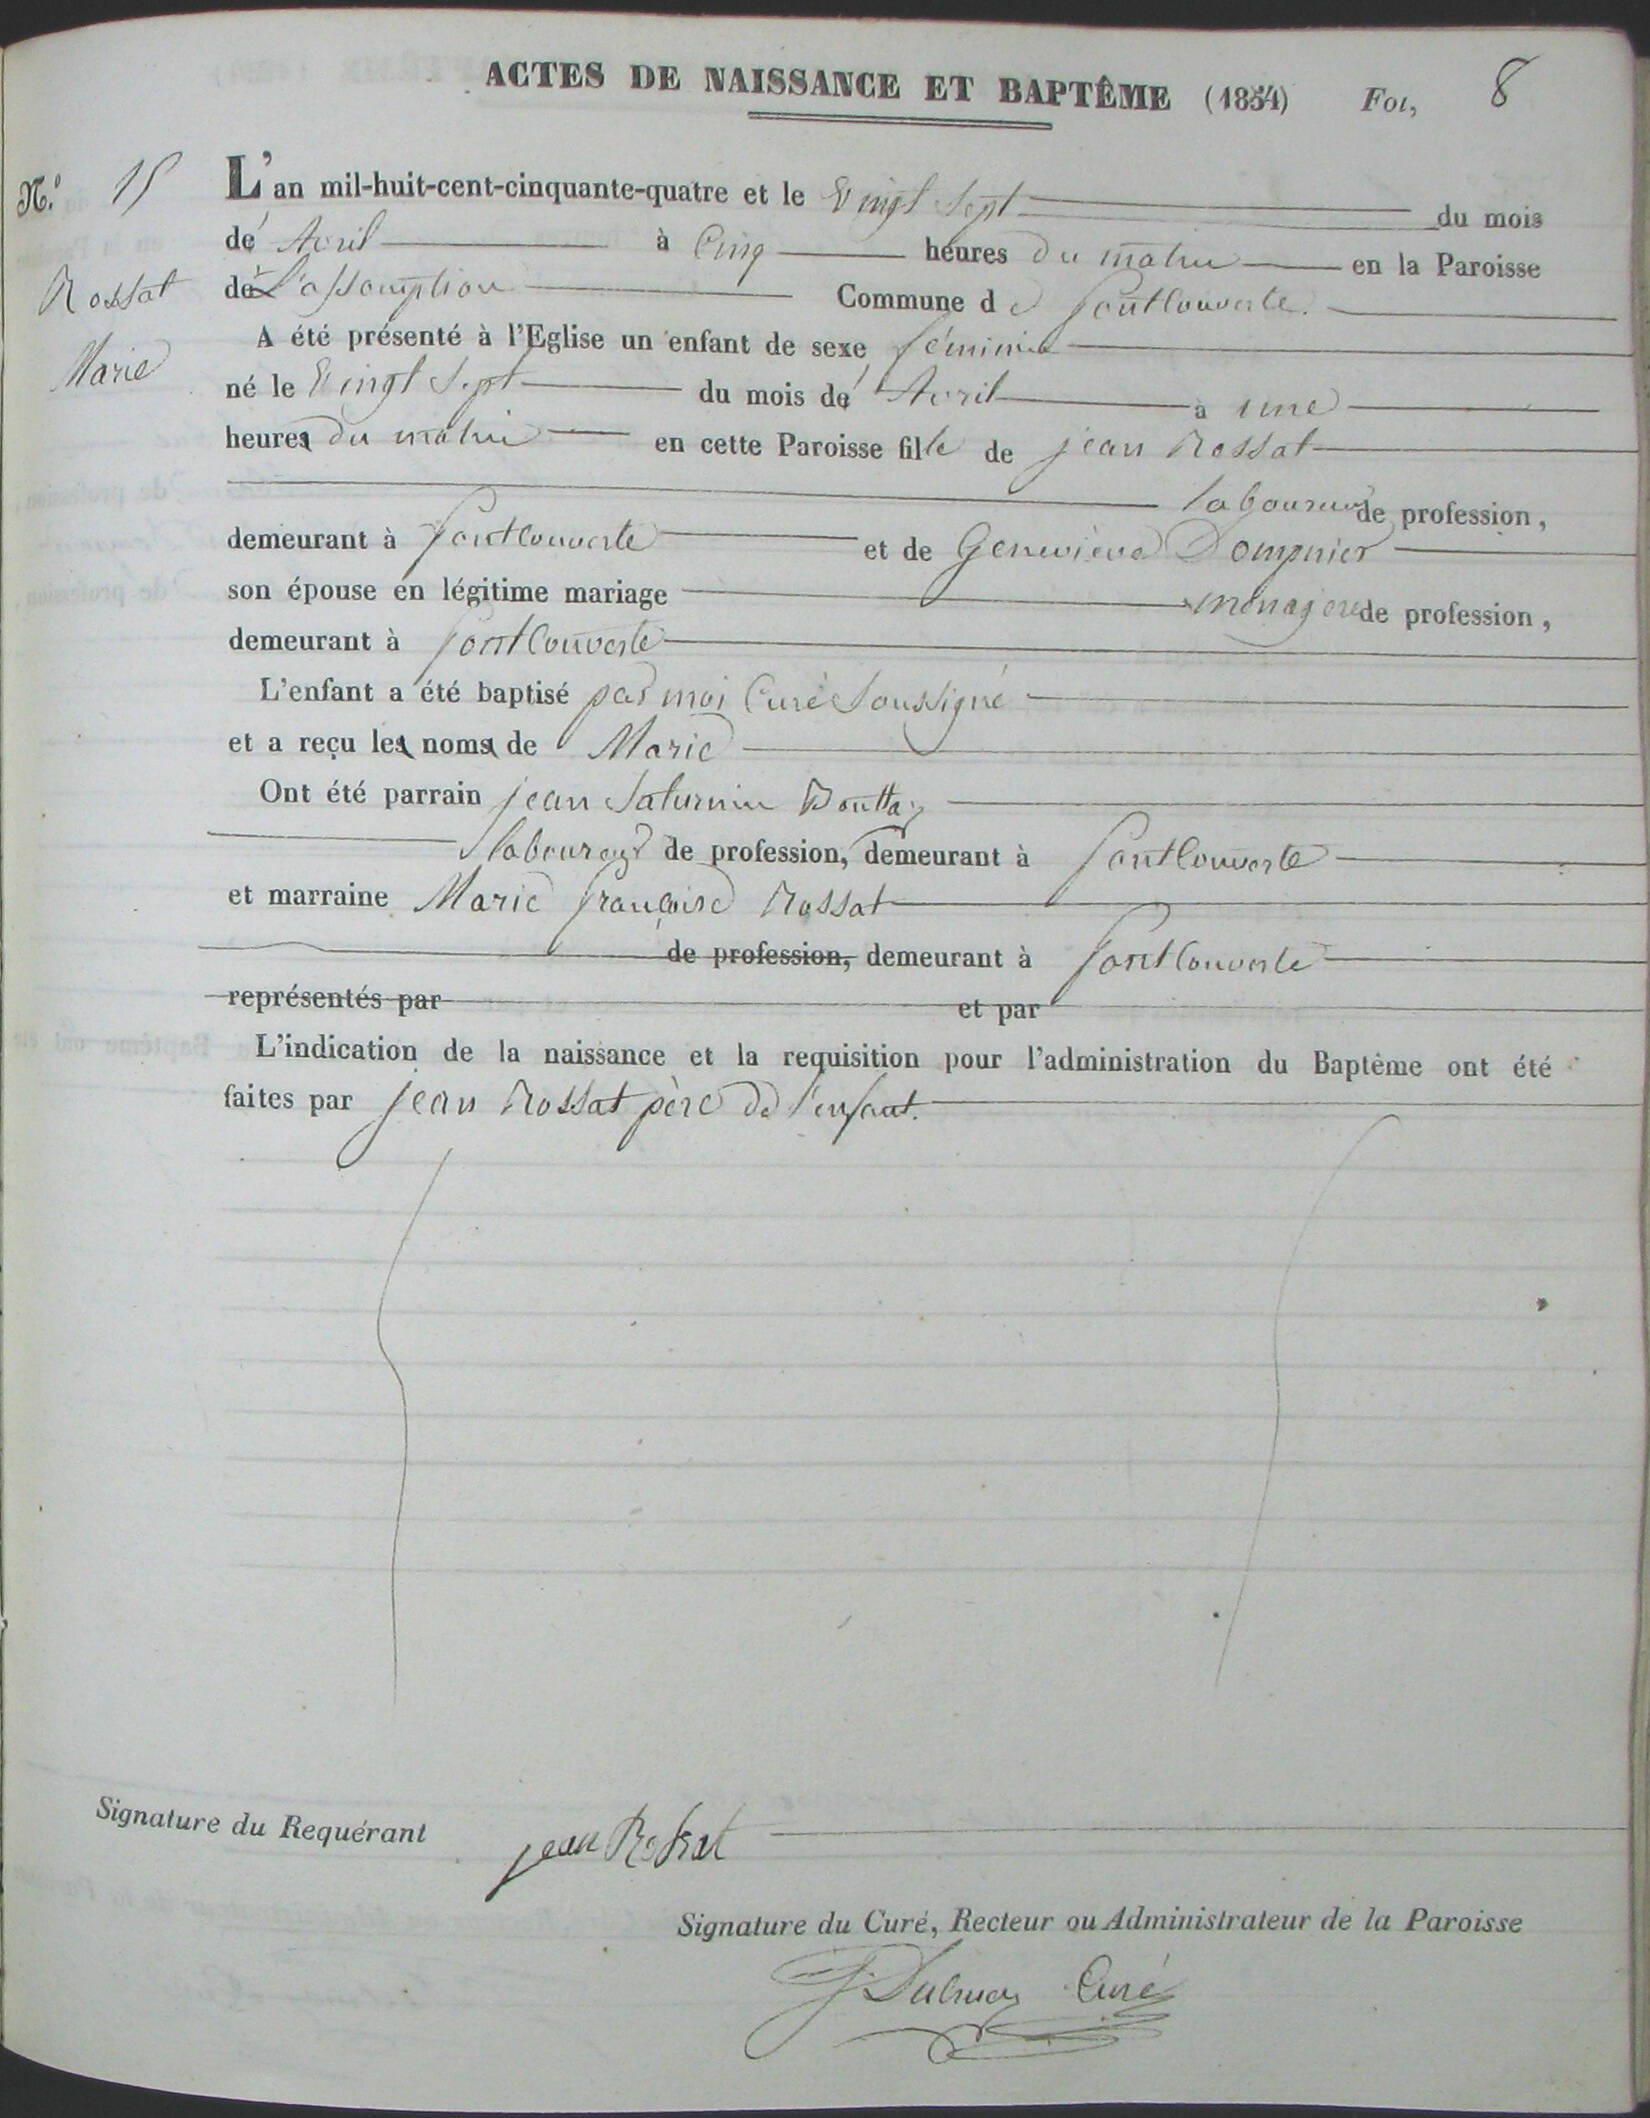 ACTES DE NAISSANCE ET BAPTÊME (1854) Fol, 8
N.º 15 L'an mil-huit-cent-cinquante-quatre et le Vingt Sept du mois
de Avril à Cinq heures du matin en la Paroisse
Rossat de L'assomption Commune d e fontcouverte.
A été présenté à l'Eglise un enfant de sexe féminin
Marie né le Vingt Sept du mois de Avril à une
heures du matin en cette Paroisse fille de jean Rossat
laboureur de profession,
demeurant à fontcouverte et de Geneviève Dompnier
son épouse en légitime mariage ménagere de profession,
demeurant à fontcouverte
L'enfant a été baptisé par moi Curé Soussigné
et a reçu les noms de Marie
Ont été parrain jean Saturnin
laboureur de profession, demeurant à fontcouverte
et marraine Marie françoise Rossat
de profession, demeurant à fontcouverte
représentés par et par
L'indication de la naissance et la requisition pour l'administration du Baptême ont été
faites par jean Rossat père de l'enfant.
Signature du Requérant jean Rossat
Signature du Curé, Recteur ou Administrateur de la Paroisse
Curé